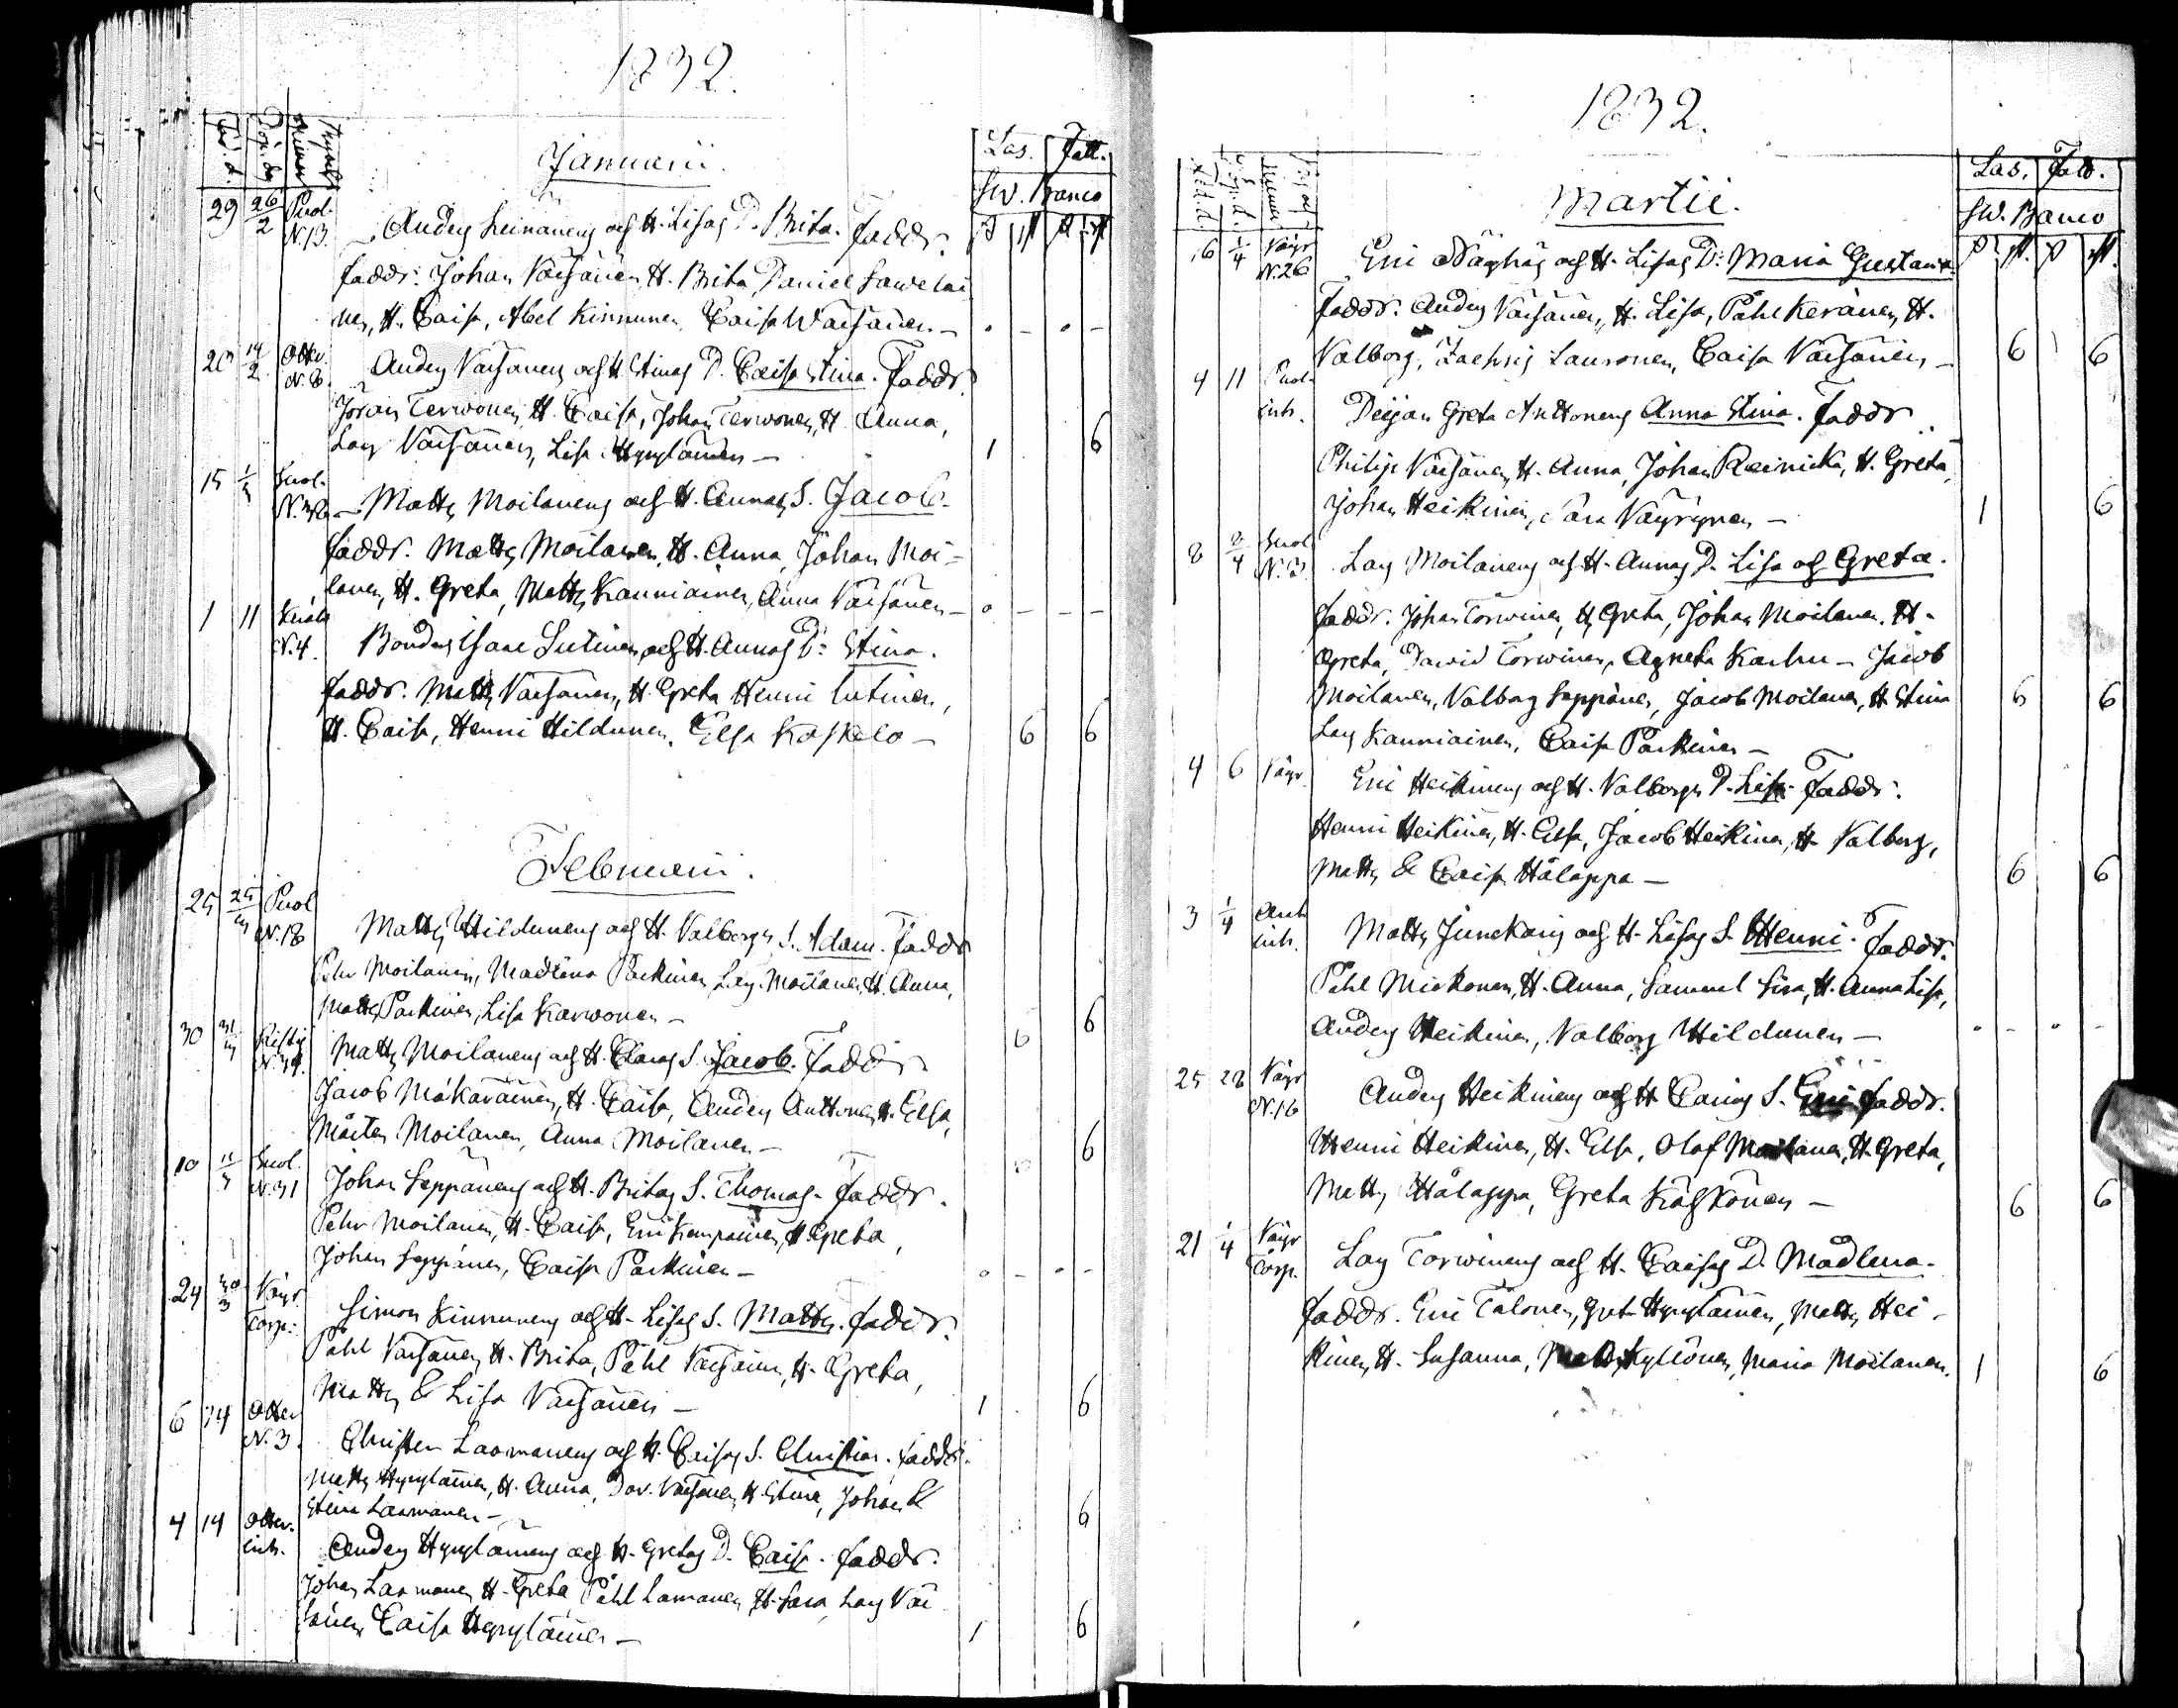 1832.
Januarii.
Las. Fatt.
Sw. Banco
29 26/2 Puol. N.13. Anders Leinanens och H. Lisas D. Brita. Faddr.
faddr: Johan Väisänen, H. Brita, Daniel Sawelai
nen, H. Caisa, Abel Kinnunen, Caisa Wäisänen. —
14/2 Otter. N.8. Anders Väisänens och H. Stinas D. Caisa Stina. Faddr.
Jöran Terwonen, H. Caisa, Johan Terwonen, H. Anna,
Lars Väisänen, Lisa Hyrylainen — 1 6
15 Suol. N.38 — Matts Moilanens och H. Annas S. Jacob.
faddr. Matts Moilanen, H. Anna, Johan Moi-
lanen, H. Greta, Matts Kanniainen, Anna Väisänen —
1 11 N.4. Bonden Isaac Lutinens och H. Annas D: Stina.
faddr. Matts Väisänen, H. Greta, Henric Lutinen,
H. Caisa, Henric Hildunen, Elsa Koskelo — 6 6
Februarii.
25 Puol N.18 Matts Hildunens och H. Valborgs S. Adam. Faddr
Pehr Moilanen, Madlena Parkinen, Lars Moilanen, H. Anna,
Matts Parkinen, Lisa Karwonen — 6 6
30 Ristij Matts Moilanens och H. Claras S. Jacob. Faddr
Jacob Mäkäräinen, H. Caisa, Anders Anttonen, H. Elsa,
Mårten Moilanen, Anna Moilanen — 6
10 Suol. N.31 Johan Seppänens och H. Britas S. Thomas. Faddr.
Pehr Moilanen, H. Caisa, Eric Kempainen, H. Greta,
Johan Seppänen, Caisa Parkinen —
24 30/3 Väyr. Torp: Simon Kinnunens och H. Lisas S. Matts. faddr.
Påhl Väisänen, H. Brita, Påhl Väisänen, H. Greta,
Matts & Lisa Väisänen — 1 6
6 14 Otter N.3. Christer Laamanens och H. Caisas S. Christian. faddr.
Matts Hyrylainen, H. Anna, Dav. Väisänen, H. Stina, Johan &
Stina Laamanen — 6
4 14 Otter. inh. Anders Hyrylainens och H. Gretas D. Caisa. faddr.
Johan Laamanen, H. Greta, Påhl Lamanen, H. Sara, Lars Väi
sänen, Caisa Hyrylainen — 1 6
1832.
Martii.
Las. Fatt.
Sw. Banco
16 1/4 Väyr N.26 Eric Näyhäs och H. Lisas D: Maria Gustava.
faddr. Anders Väisänen, H. Lisa, Påhl Keränen, H.
Valborg, Zachris Lauronen, Caisa Väisänen — 6 6
4 11 Puol. inh. Pigan Greta Anttonens Anna Stina. faddr
Philip Väisänen, H. Anna, Johan Reinicka, H. Greta,
Johan Heikinen, Sara Väyrynen — 1 6
8 8/4 Suol N.3. Lars Moilanens och H. Annas D. Lisa och Greta.
faddr. Johan Torwinen, H. Greta, Johan Moilanen, H.
Greta, David Torwinen, Agneta Karhu — Jacob
Moilanen, Valborg Seppänen, Jacob Moilanen, H. Stina 6 6
Lars Kanniainen, Caisa Parkinen —
4 6 Väyr. Eric Heikinens och H. Valborgs D. Lisa. Faddr.
Henric Heikinen, H. Elsa, Jacob Heikinen, H. Valborg,
Matts & Caisa Hålappa — 6 6
3 1/4 inh. Matts Junckaris och H. Lisas S. Henric. Faddr.
Påhl Miokonen, H. Anna, Samuel Sira, H. Anna Lisa,
Anders Heikinen, Valborg Hildunen —
25 28 Väyr N.16 Anders Heikinens och H. Carins S. Eric faddr.
Henric Heikinen, H. Elsa, Olof Moilanen, H. Greta,
Matts Hålappa, Greta Kåskonen — 6 6
21 1/4 Väyr Torp. Lars Torwinens och H. Caisas D. Madlena.
faddr. Eric Talonen, Gret. Hyrylainen, Matts Hei-
kinen, H. Susanna, Matts Kyllönen, Maria Moilanen. 1 6